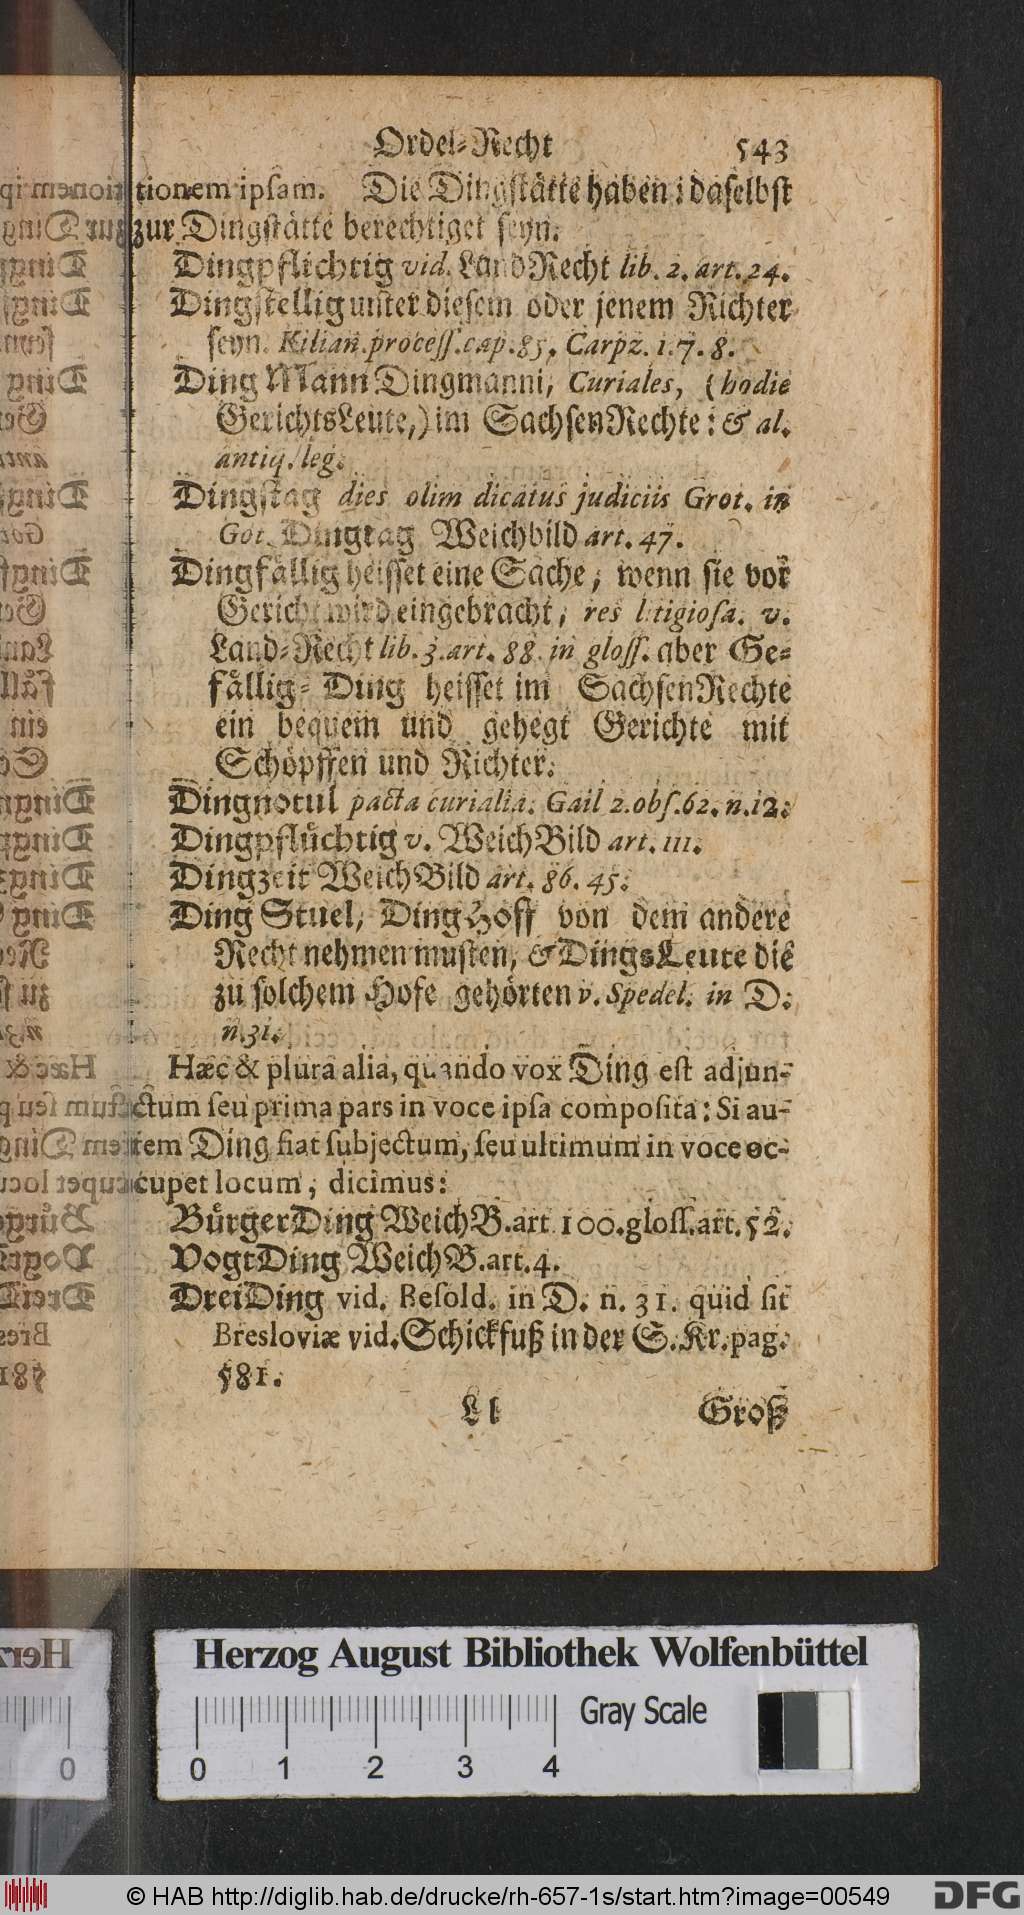 Ordel-Recht 543
tionem ipsam. Die Dingstätte haben: daselbst
zur Dingstätte berechtiget seyn.
Dingpflichtig vid. LandRecht lib. 2. art. 24.
Dingstellig unster diesem oder jenem Richter
seyn. Kilian. process. cap. 85. Carpz. 1. 7. 8.
Ding Mann Dingmanni, Curiales, (hodie
GerichtsLeute,) im SachsenRechte: & al.
antiq. leg.
Dingstag dies olim dicatus judiciis Grot. in
Got. Dingtag Weichbild art. 47.
Dingfällig heisset eine Sache, wenn sie vor
Gericht wird eingebracht, res litigiosa. v.
Land-Recht lib. 3. art. 88. in gloss. aber Ge-
fällig-Ding heisset im SachsenRechte
ein bequem und gehegt Gerichte mit
Schöpffen und Richter.
Dingnotul pacta curialia. Gail 2. obs. 62. n. 12.
Dingpflüchtig v. WeichBild art. 111.
Dingzeit WeichBild art. 86. 45.
Ding Stuel, DingHoff von dem andere
Recht nehmen musten, & DingsLeute die
zu solchem Hofe gehörten v. Spedel. in D.
n. 31.
Hæc & plura alia, quando vox Ding est adjun-
ctum seu prima pars in voce ipsa composita: Si au-
tem Ding fiat subjectum, seu ultimum in voce oc-
cupet locum, dicimus:
BürgerDing WeichB. art 100. gloss. art. 52.
VogtDing WeichB. art. 4.
DreiDing vid. Besold. in D. n. 31. quid sit
Bresloviæ vid. Schickfuß in der S. Kr. pag.
581.
Ll Groß
Herzog August Bibliothek Wolfenbüttel
Gray Scale
0 1 2 3 4
© HAB http://diglib.hab.de/drucke/rh-657-1s/start.htm?image=00549
DFG